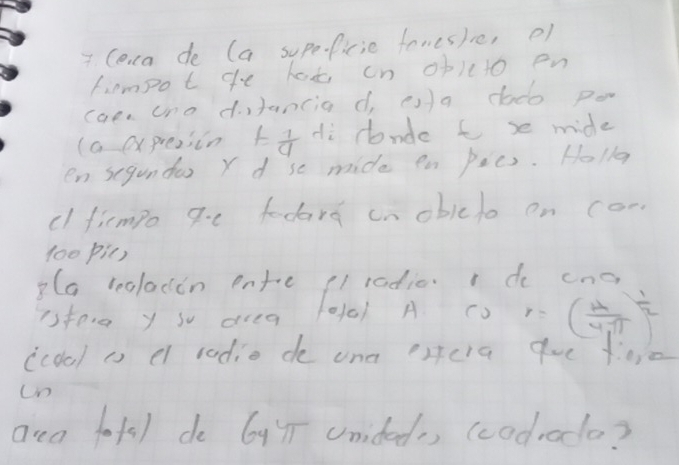 7 Cerca de la superficie terrestre, el
tiempo t que tarda un objeto en
caer una distancia d, esta dado por
la expresión t 1/4 di donde t se mide
en segundos y d se mide en pies. Halla
el tiempo que tadará un objeto en caer
100 pies
8 La realación entre el radio r de una
esfera y su area total A es r = (A/4π)^1/2
¿cual es el radio de una esfera que tiene
un
area total de 64π unidades cuadrada?